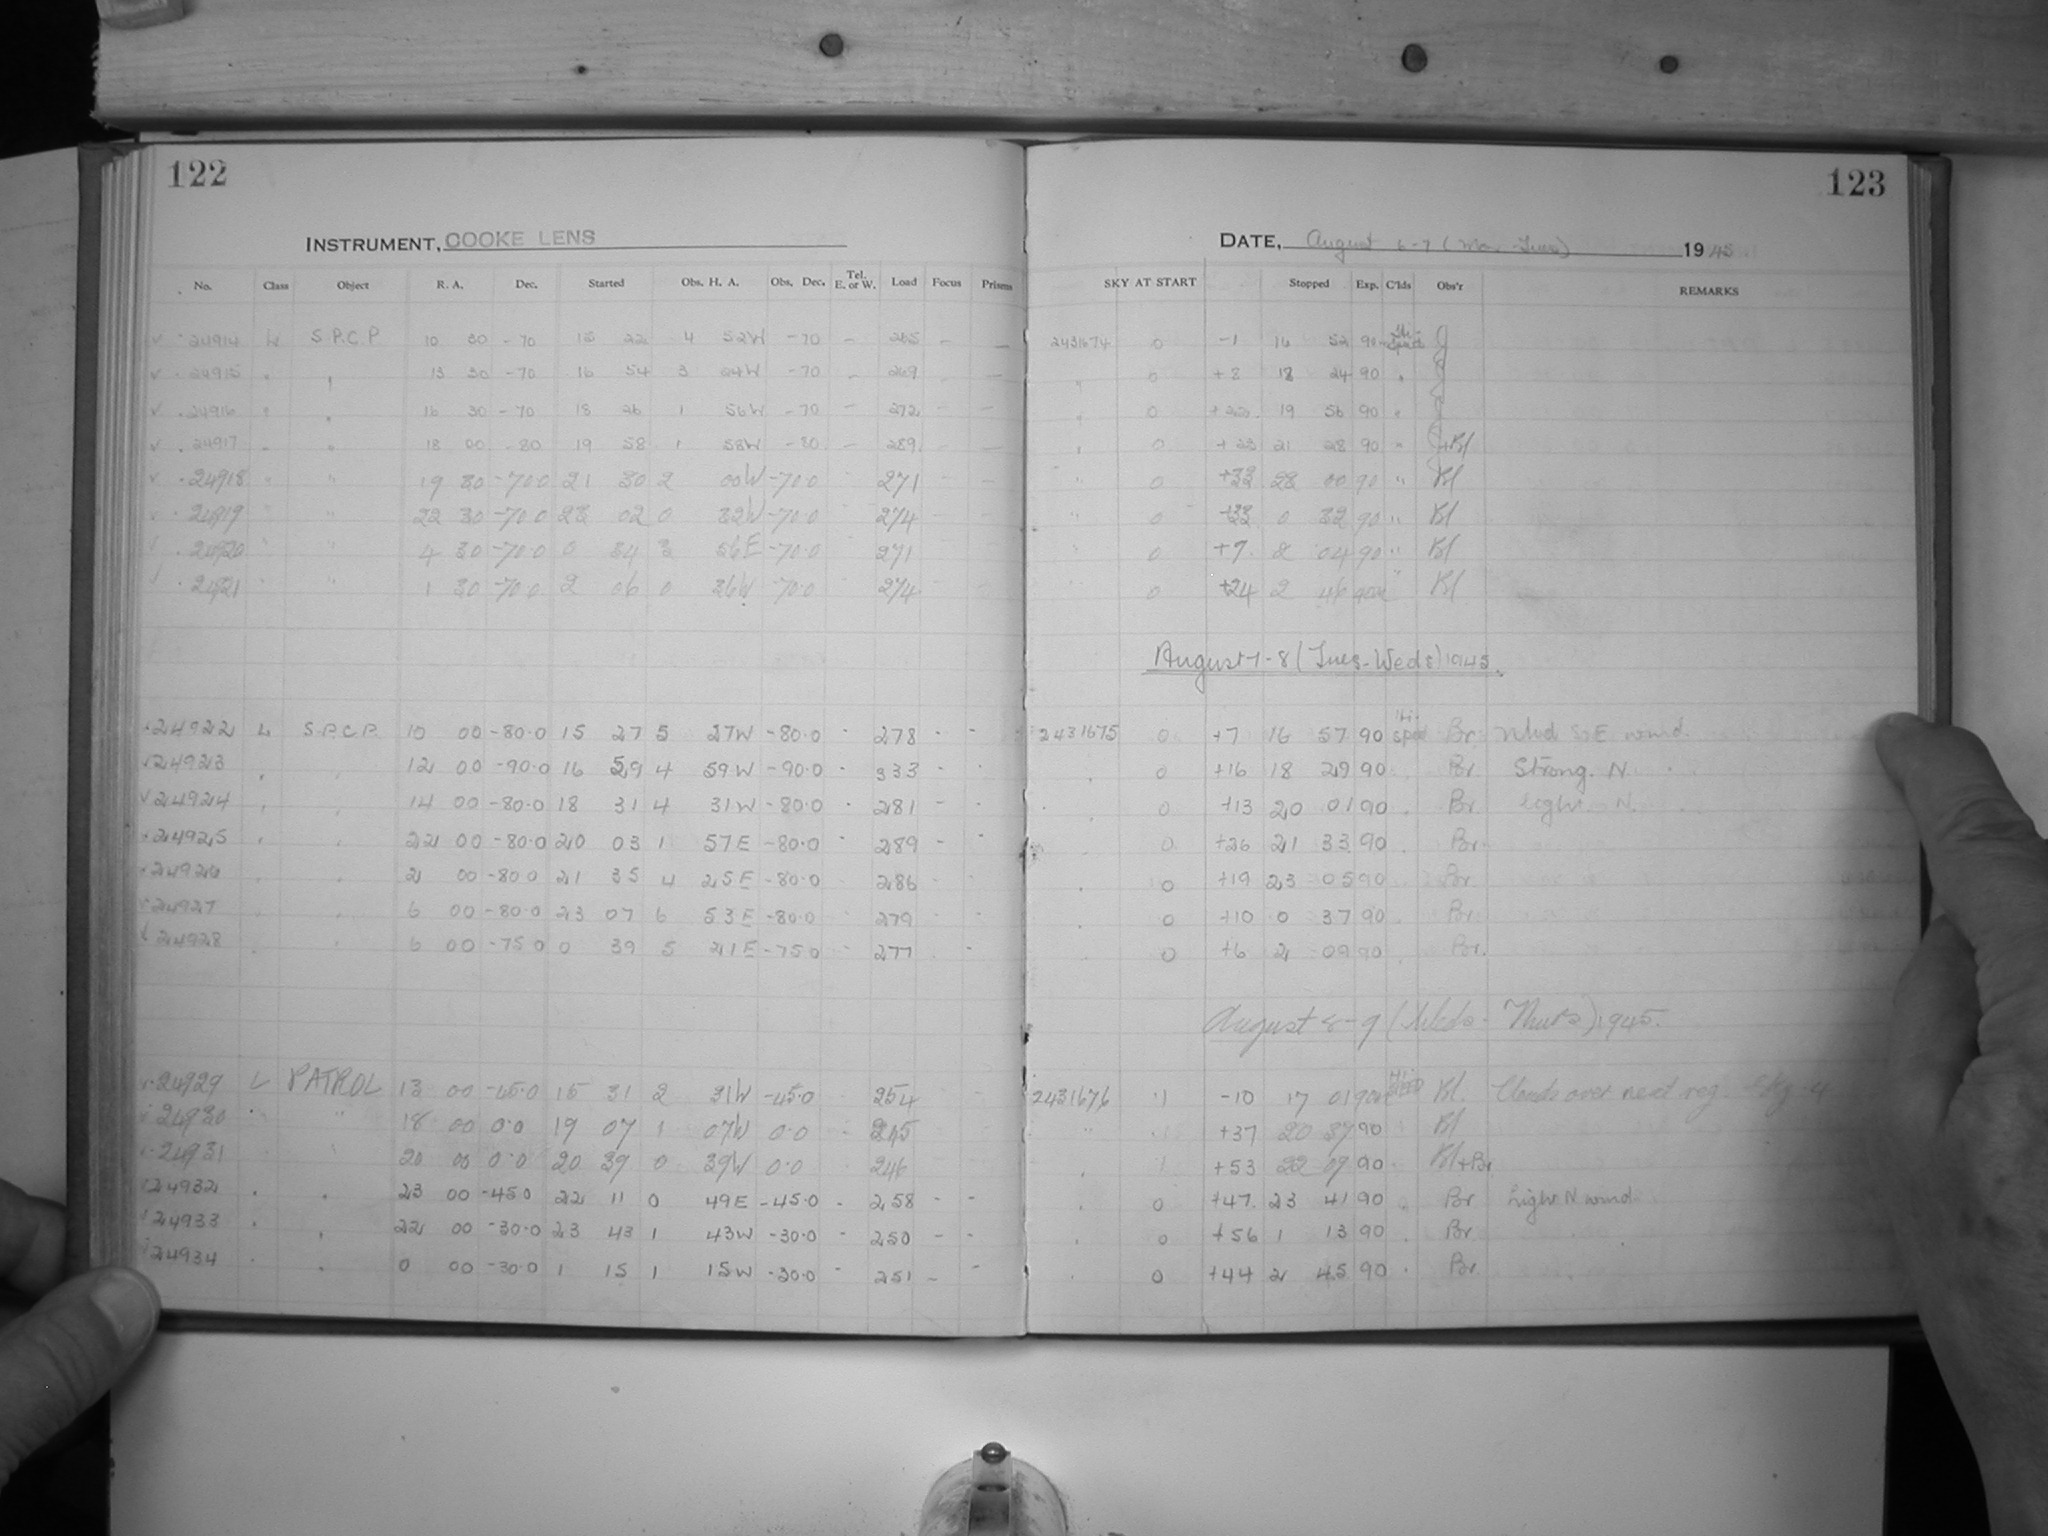 122
INSTRUMENT, COOKE LENS
No. Class Object R. A. Dec. Started Obs. H. A. Obs. Dec. Tel. E. or W. Load Focus Prisms
24914 L S.P.C.P 10 30 -70 15 22 4 52W -70 - 265 - -
24915 " " 13 30 -70 16 54 3 24W -70 - 269 - -
24916 " " 16 30 -70 18 26 1 56W -70 - 272 - -
24917 " " 18 00 -80 19 58 1 58W -80 - 289 - -
24918 " " 19 30 -70.0 21 30 2 00W -70.0 271
24919 " " 22 30 -70.0 23 02 0 32W -70.0 274
24920 " " 4 30 -70.0 0 34 3 56E -70.0 271
24921 " " 1 30 -70.0 2 06 0 36W -70.0 274
24922 L S.P.C.P. 10 00 -80.0 15 27 5 27W -80.0 - 278 - -
24923 12 00 -90.0 16 59 4 59W -90.0 - 333 - -
24924 14 00 -80.0 18 31 4 31W -80.0 - 281 - -
24925 22 00 -80.0 20 03 1 57E -80.0 - 289 - -
24926 2 00 -80.0 21 35 4 25E -80.0 - 286 - -
24927 6 00 -80.0 23 07 6 53E -80.0 - 279 - -
24928 6 00 -75.0 0 39 5 21E -75.0 - 277 -
24929 L PATROL 13 00 -45.0 15 31 2 31W -45.0 254
24930 " 18 00 0.0 19 07 1 07W 0.0 245
24931 " 20 00 0.0 20 39 0 39W 0.0 246
24932 23 00 -45.0 22 11 0 49E -45.0 - 258 - -
24933 22 00 -30.0 23 43 1 43W -30.0 - 250 - -
24934 0 00 -30.0 1 15 1 15W -30.0 - 251 - -
123
DATE, August 6-7 (Mon-Tues) 1945
SKY AT START Stopped Exp. C'lds Obs'r REMARKS
2431674 0 -1 16 52 90 J
" 0 +8 18 24 90 " J
" 0 19 56 90 " J
" 0 +23 21 28 90 " J+Bl
" 0 +33 23 00 90 " Bl
" 0 +33 0 32 90 " Bl
" 0 +7 2 04 90 " Bl
" 0 +24 2 46 Bl
August 7-8 (Tues-Weds) 1945.
2431675 0 +7 16 57 90 Br. Mild S.E wind.
0 +16 18 29 90 Br. Strong. N. "
0 +13 20 01 90 Br. Light. N. "
0 +26 21 33 90 Br.
0 +19 23 05 90 Br.
0 +10 0 37 90 Br.
0 +6 2 09 90 Br.
August 8-9 (Weds- Thurs) 1945.
2431676 1 -10 17 01 Bl. Clouds over next reg.
" 1 +37 20 37 90 Bl
1 +53 22 09 90 Bl+Br
0 +47 23 41 90 Br Light N wind.
0 +56 1 13 90 Br
0 +44 2 45 90 Br.